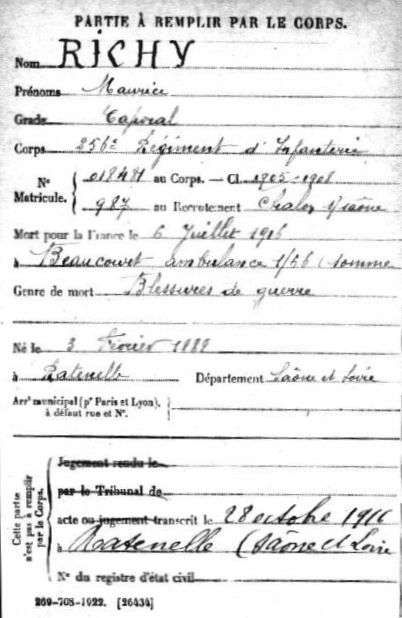 PARTIE À REMPLIR PAR LE CORPS.
Nom RICHY
Prénoms Maurice
Grade Caporal
Corps 256e Régiment d'Infanterie
N° Matricule. { 018471 au Corps. — Cl. 1902-1908
987 au Recrutement Chalon s/Saône
Mort pour la France le 6 Juillet 1916
à Beaucourt ambulance 1/56 (Somme
Genre de mort Blessures de guerre
Né le 3 Février 1882
à Ratenelle Département Saône et Loire
Arrt municipal (pr Paris et Lyon),
à défaut rue et N°.
Cette partie n'est pas à remplir par le Corps.
Jugement rendu le
par le Tribunal de
acte ou jugement transcrit le 28 octobre 1916
à Ratenelle (Saône et Loire
N° du registre d'état civil
269-708-1922. [26434]